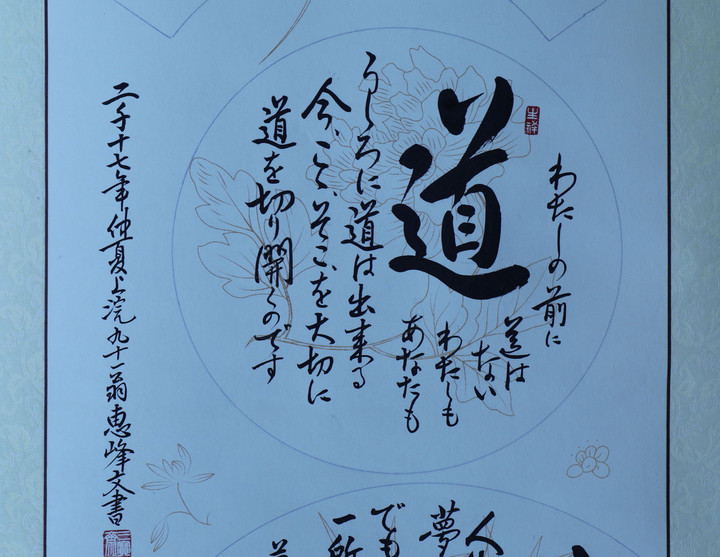 道
わたしの前に
道は
ない
わたしも
あなたも
うしろに道は出来る
今、ここ、そこ、を大切に
道を切り開くのです
二千十七年仲夏上浣九十一翁恵峰文書
人
夢
でも
一所